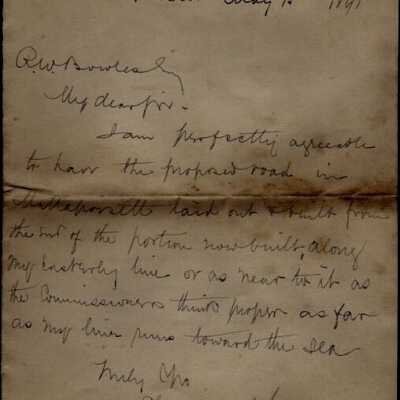 May 1 1891
R.W. Bowles
My dear Sir -
I am perfectly agreeable
to have the proposed road in
laid out & built from
the end of the portion now built, along
my Easterly line or as near to it as
the Commissioners think proper as far
as my line runs toward the sea
Truly Yrs